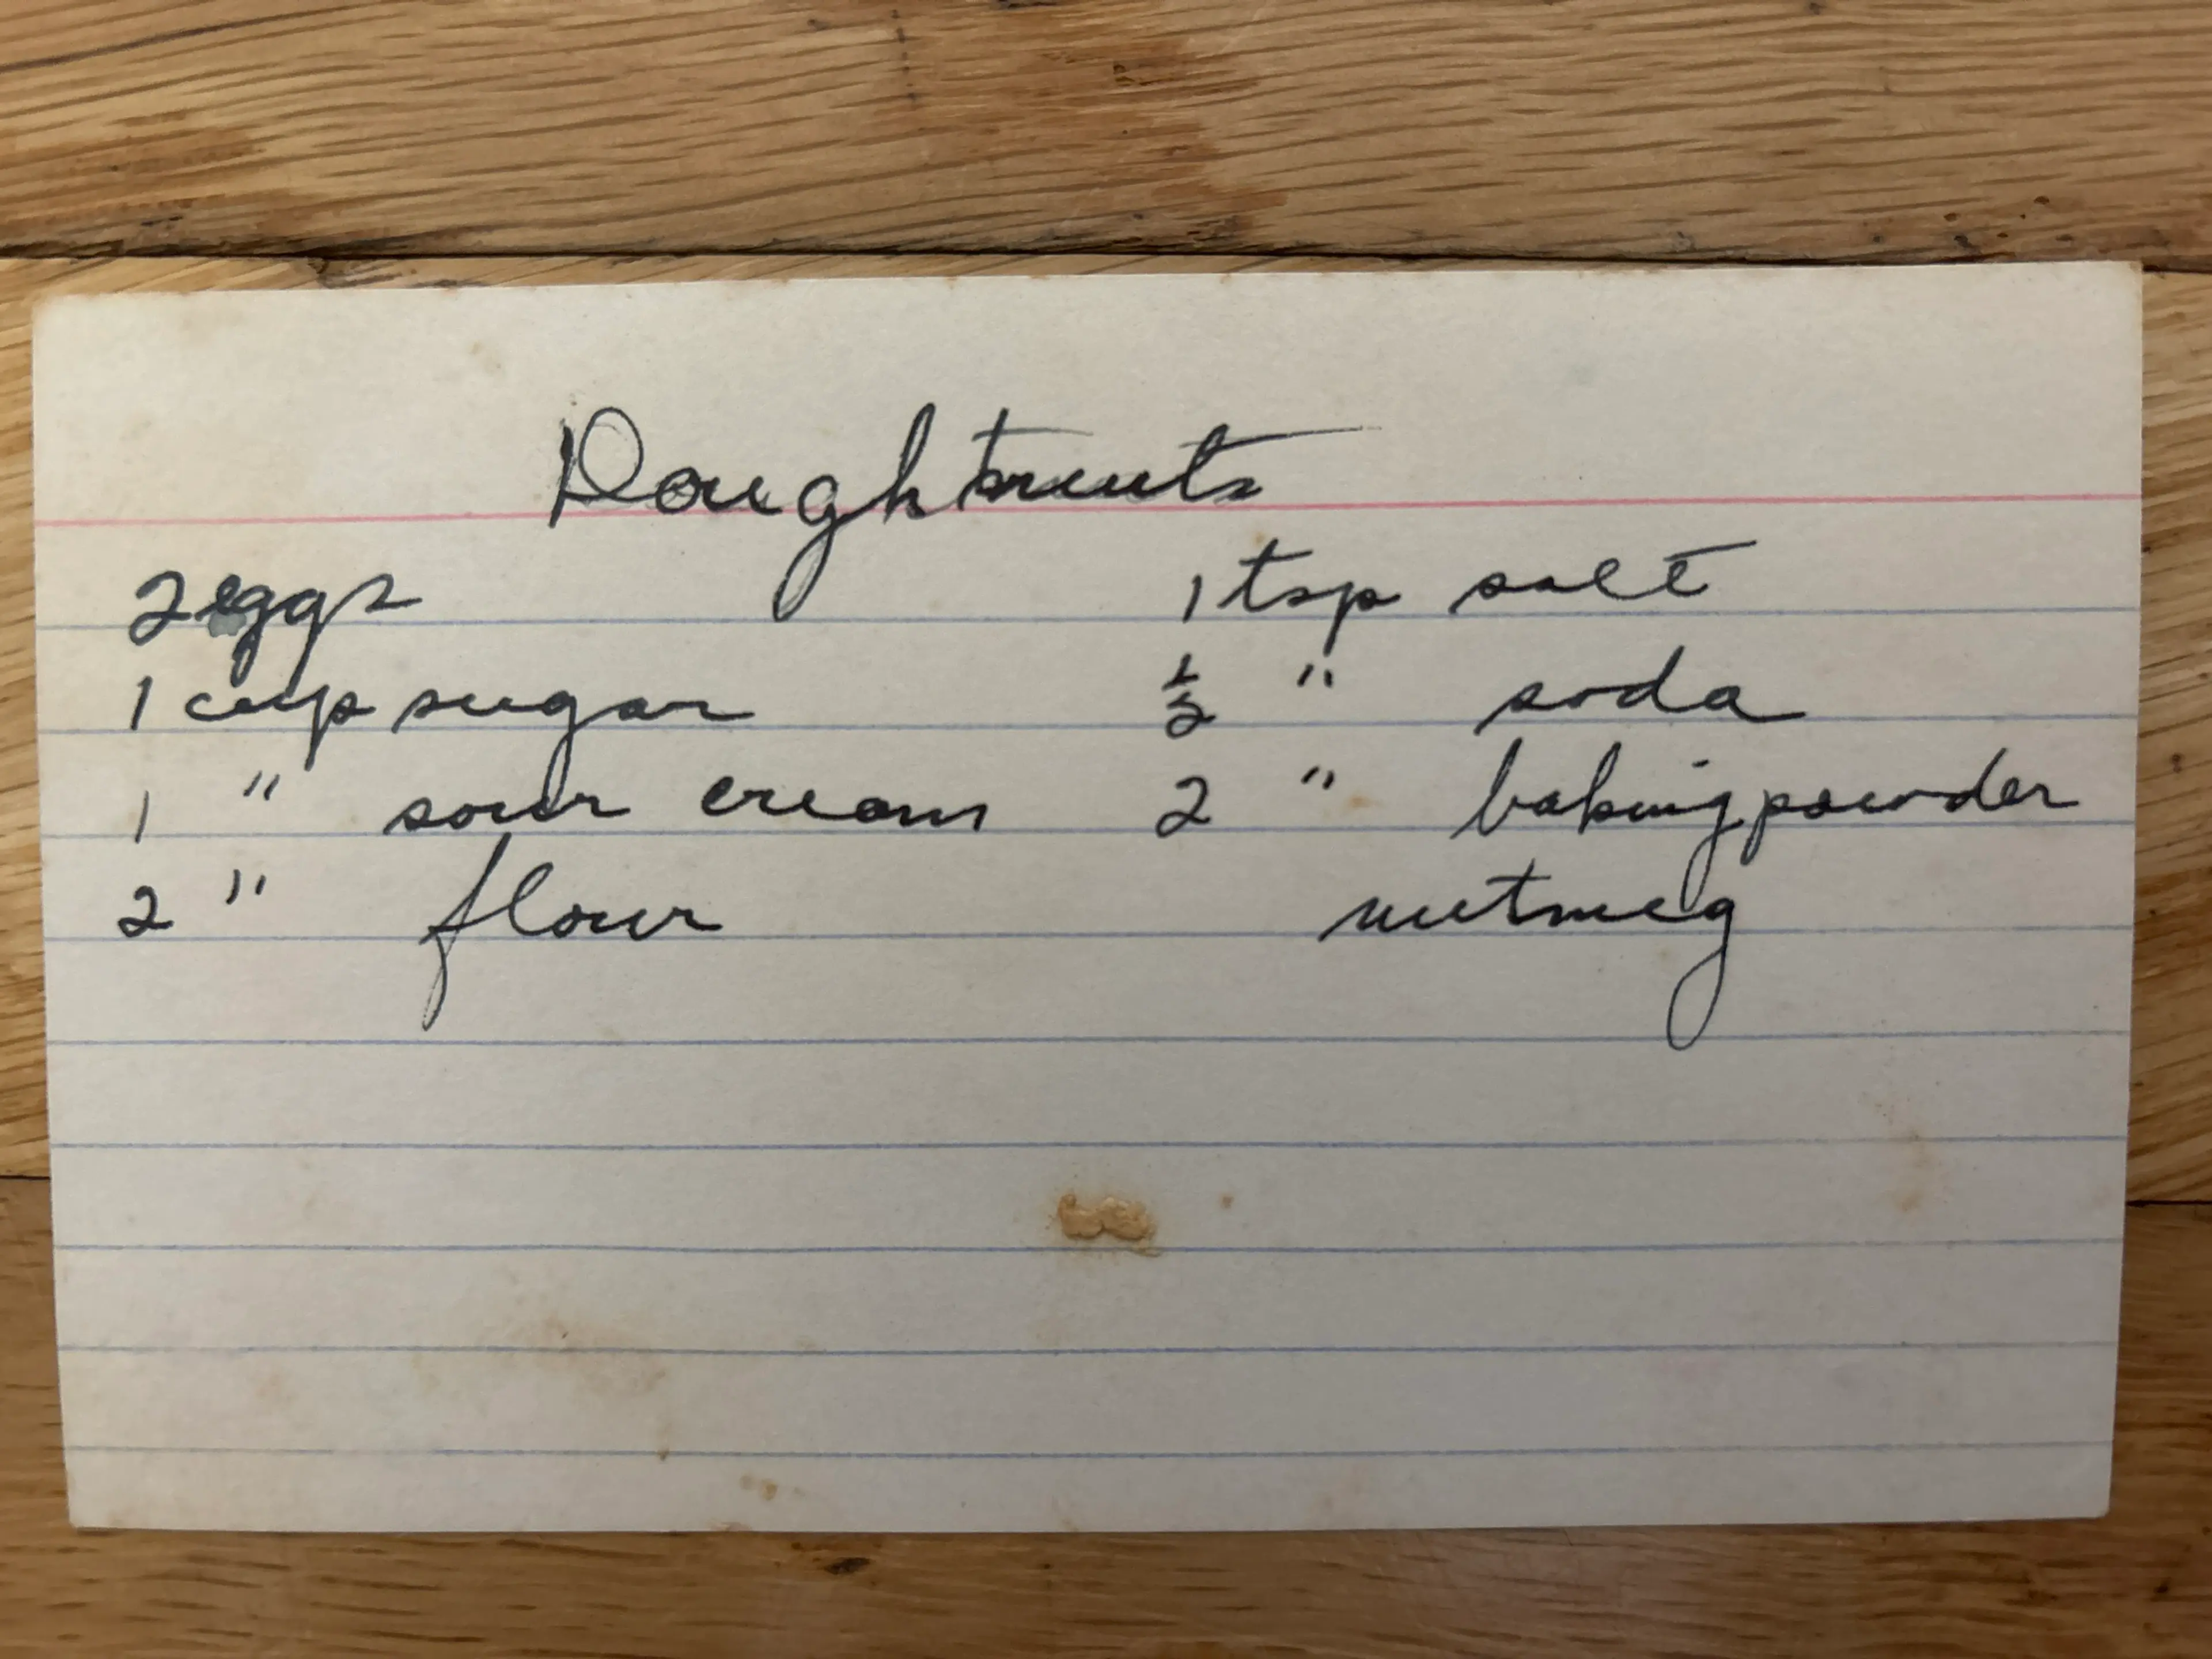 Doughtnuts
2 eggs
1 cup sugar
1 " sour cream
2 " flour
1 tsp salt
1/2 " soda
2 " baking powder
nutmeg